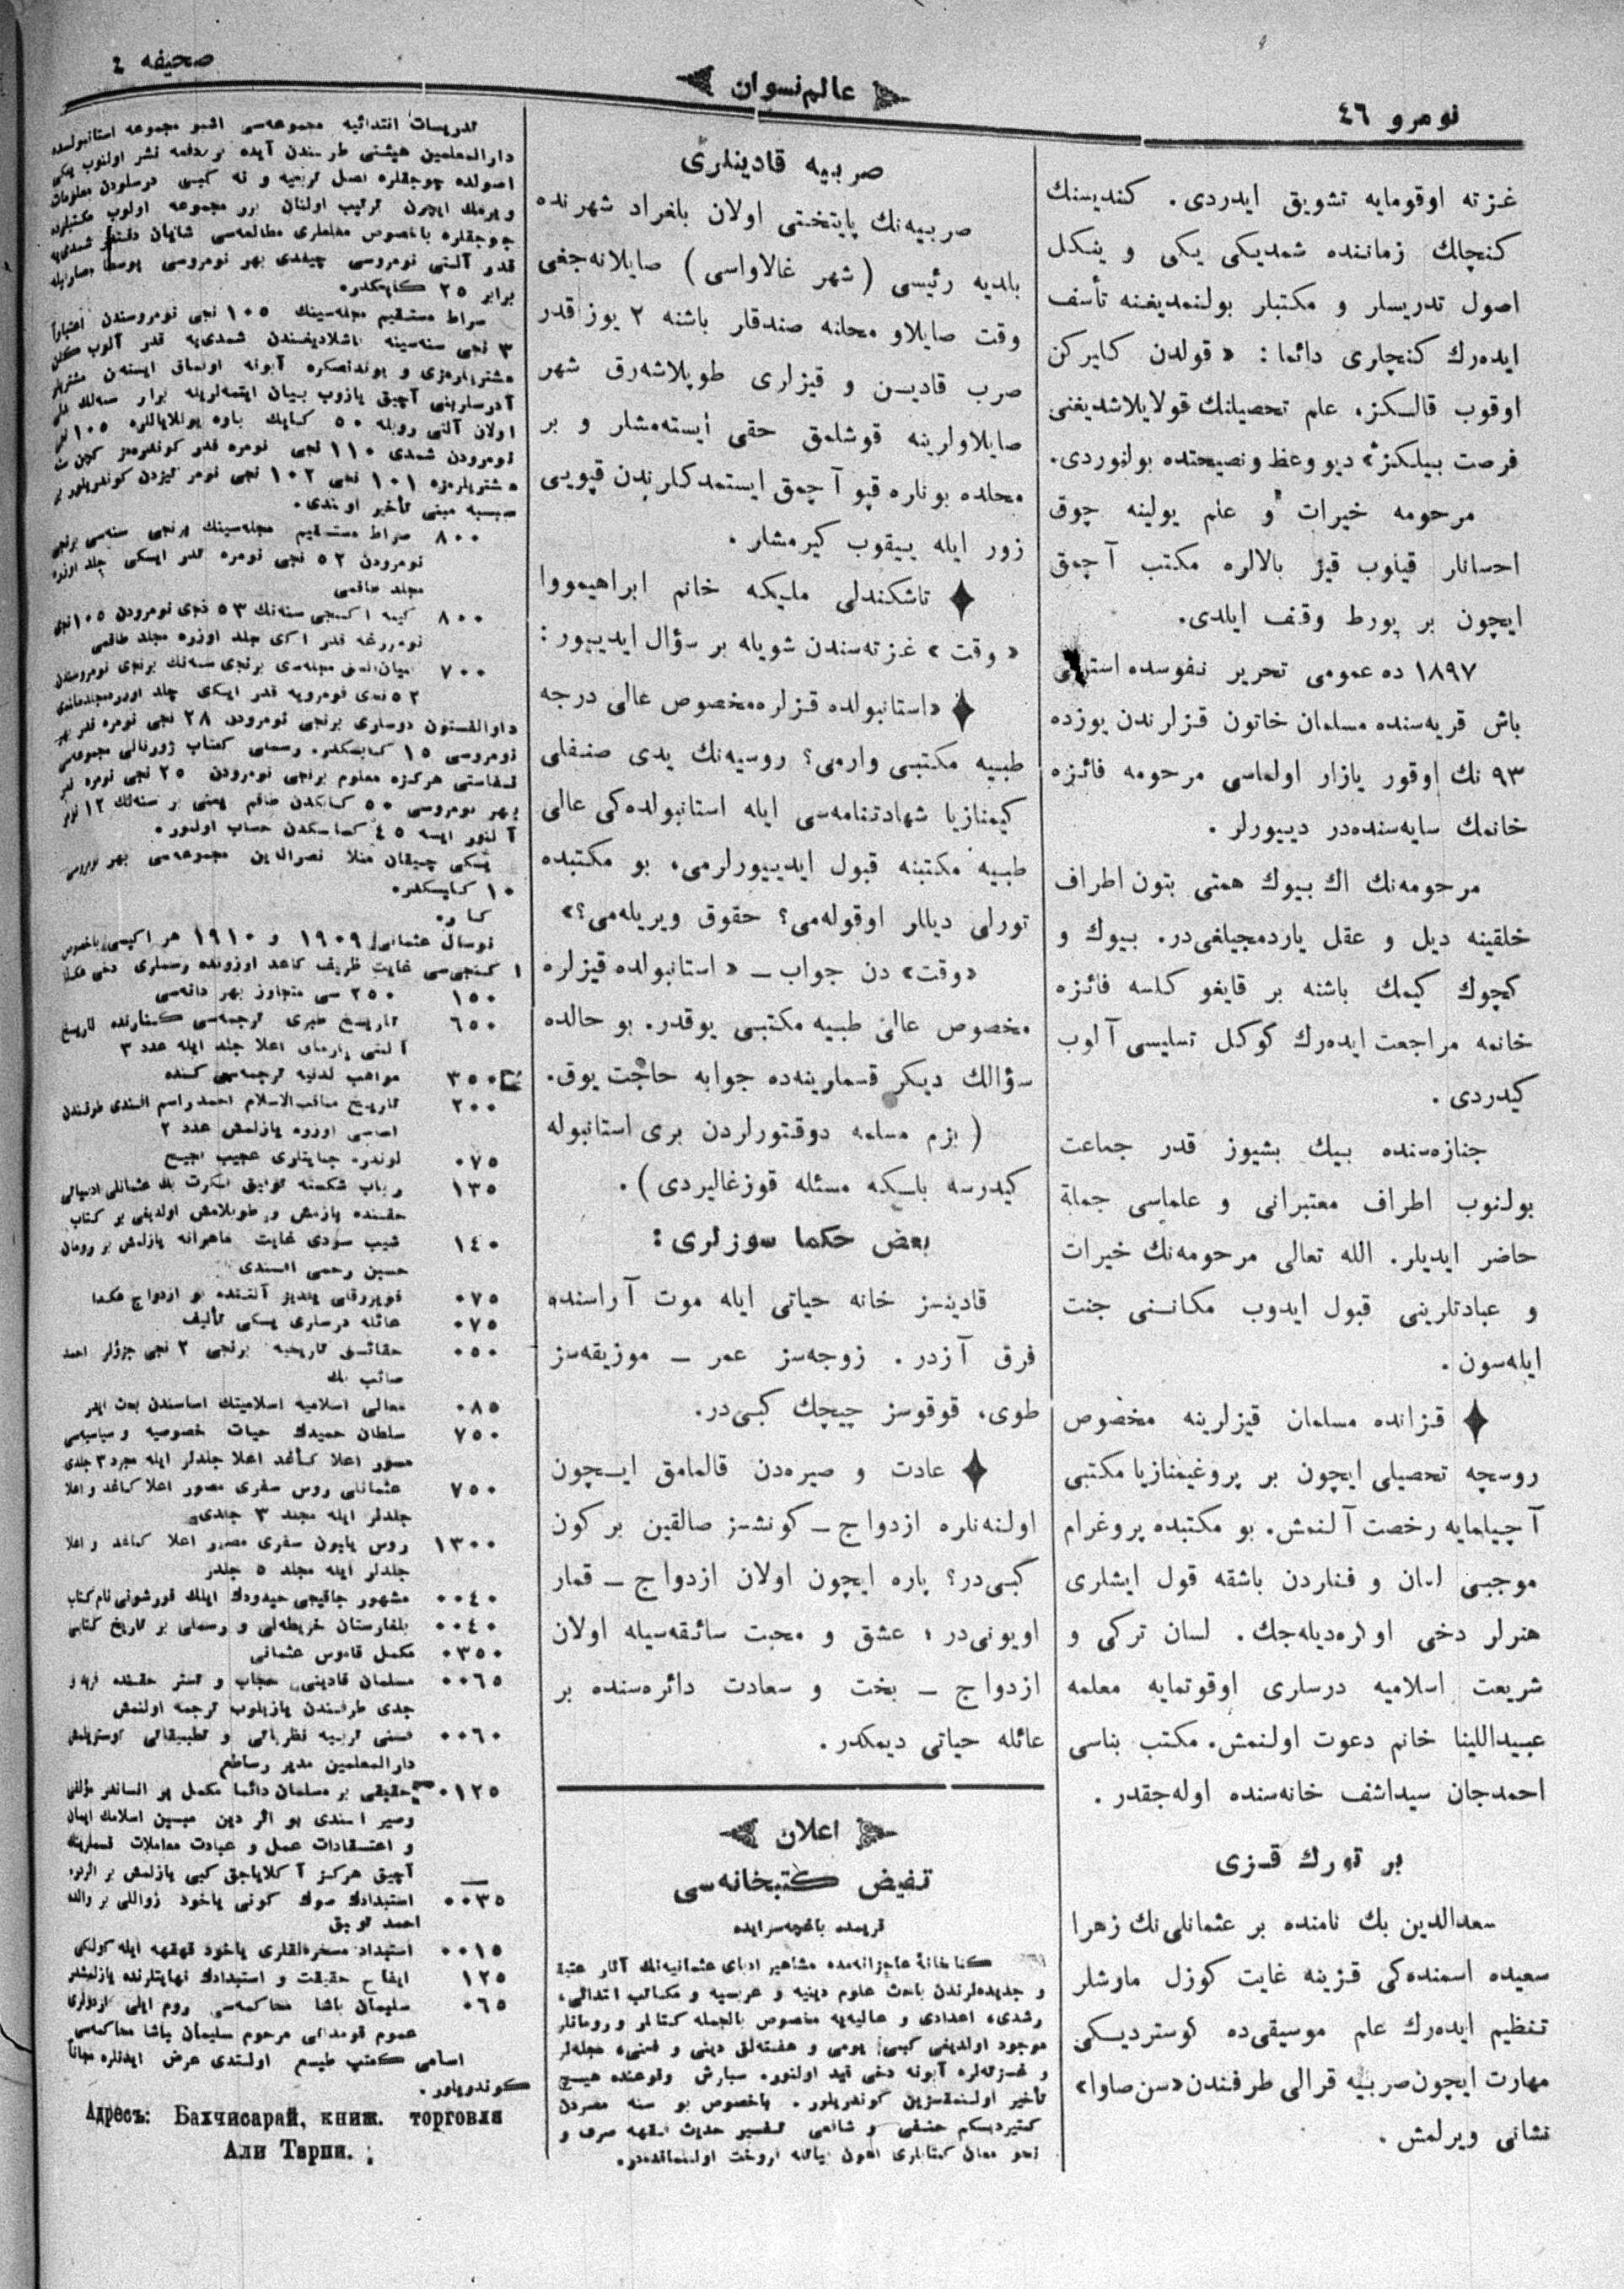 نومرو ٤٦
عالم نسوان
صحیفه ٤
غزته اوقومایه تشویق ایدردی. کندیسنك
کنچلك زماننده شمدیکی یکی و ینکل
اصول تدریسلر و مکتبلر بولنمدیغنه تأسف
ایده‌رك کنچلری دائما: «قولدن کلیرکن
اوقوب قالکز، علم تحصیلنك قولایلاشدیغنی
فرصت بیلکز» دیو وعظ و نصیحتده بولنوردی.
مرحومه خیرات و علم یولینه چوق
احسانلر قیلوب قیز بالالره مکتب آچمق
ایچون بر یورط وقف ایلدی.
١٨٩٧ ده عمومی تحریر نفوسده
باش قریه‌سنده مسلمان خاتون قزلرندن یوزده
٩٣ نك اوقور یازار اولماسی مرحومه فائزه
خانمك سایه‌سنده‌در دییورلر.
مرحومه‌نك اك بیوك همتی بتون اطراف
خلقینه دیل و عقل یاردمجیلغی‌در. بیوك و
کچوك کیمك باشنه بر قایغو کلسه فائزه
خانمه مراجعت ایده‌رك کوکل تسلیسی آلوب
کیدردی.
جنازه‌سنده بیك بشیوز قدر جماعت
بولنوب اطراف معتبرانی و علماسی جملة
حاضر ایدیلر. الله تعالی مرحومه‌نك خیرات
و عبادتلرینی قبول ایدوب مکانـنی جنت
ایله‌سون.
قزانده مسلمان قیزلرینه مخصوص
روسچه تحصیلی ایچون بر پروغیمنازیا مکتبی
آچیلمایه رخصت آلنمش. بو مکتبده پروغرام
موجبی لسان و فنلردن باشقه قول ایشلری
هنرلر دخی اوگره‌دیله‌جك. لسان ترکی و
شریعت اسلامیه درسلری اوقوتمایه معلمه
عبیداللینا خانم دعوت اولنمش. مکتب بناسی
احمدجان سیداشف خانه‌سنده اوله‌جقدر.
بر تورك قزی
سعدالدین بك نامنده بر عثمانلی‌نك زهرا
سعیده اسمنده‌کی قزینه غایت کوزل مارشلر
تنظیم ایده‌رك علم موسیقی‌ده کوستردیکی
مهارت ایچون صربیه قرالی طرفندن «سن صاوا»
نشانی ویرلمش.
صربیه قادینلری
صربیه‌نك پایتختی اولان بلغراد شهرنده
بلدیه رئیسی (شهر غالاواسی) صایلانه‌جغی
وقت صایلاو محلنه صندقلر باشنه ٢ یوز قدر
صرب قادین و قیزلری طوپلاشه‌رق شهر
صایلاولرینه قوشلمق حقی ایسته‌مشلر و بر
محلده بونلره قپو آچمق ایستمدکلرندن قپویی
زور ایله ییقوب کیرمشلر.
تاشکندلی ملیکه خانم ابراهیمووا
«وقت» غزته‌سندن شویله بر سؤال ایدییور:
«استانبولده قزلره مخصوص عالی درجه
طبیه مکتبی وارمی؟ روسیه‌نك یدی صنفلی
کیمنازیا شهادتنامه‌سی ایله استانبولده‌کی عالی
طبیه مکتبنه قبول ایدییورلرمی، بو مکتبده
تورلی دیللر اوقوله‌می؟ حقوق ویریله‌می؟»
«وقت» دن جواب ـ «استانبولده قیزلره
مخصوص عالی طبیه مکتبی یوقدر. بو حالده
سؤالك دیکر قسملرینه‌ده جوابه حاجت یوق.
(بزم مسلمه دوقتورلردن بری استانبوله
کیدرسه بلسکه مسئله قوزغالیردی).
بعض حکما سوزلری:
قادینسز خانه حیاتی ایله موت آراسنده
فرق آزدر. زوجه‌سز عمر ـ موزیقه‌سز
طوی، قوقوسز چیچك کبی‌در.
عادت و صیره‌دن قالمامق ایچون
اولنه‌نلره ازدواج ـ کونشسز صالقین بر کون
کبی‌در؟ پاره ایچون اولان ازدواج ـ قمار
اویونی‌در، عشق و محبت سائقه‌سیله اولان
ازدواج ـ بخت و سعادت دائره‌سنده بر
عائله حیاتی دیمکدر.
اعلان
تفیض کتبخانه‌سی
قریمده باغچه‌سرایده
کتابخانهٔ عاجزانه‌مده مشاهیر ادبای عثمانیه‌نك آثار عتیقه
و جدیده‌لرندن باحث علوم دینیه و عربیه و مکاتب ابتدائی،
رشدی، اعدادی و عالیه‌یه مخصوص بالجمله کتابلر و رومانلر
موجود اولدیغی کبی یومی و هفته‌لق دینی و فنی، مجله‌لر
و غزته‌لره آبونه دخی قید اولنور. سپارش وقوعنده هیچ
تأخیر اولنمقسزین کوندریلور. باخصوص بو سنه مصردن
کتیردیکم حنفی و شافعی تفسیر حدیث فقهه صرف و
نحو معان کتابلری اهون فیأتله فروخت اولنمقده‌در.
تدریسات ابتدائیه مجموعه‌سی اشبو مجموعه استانبولده
دارالمعلمین هیئتی طرفندن آیده بر دفعه نشر اولنوب یکی
اصولده چوجقلره نصل تربیه و نه کبی درسلردن معلومات
ویرمك ایچون ترتیب اولنان بر مجموعه اولوب
چوجقلره باخصوص معلملری مطالعه‌سی شایان دقتدر شمدی‌یه
قدر آلتی نومروسی چیقدی بهر نومروسی پوسطه مصارفیله
برابر ٢٥ کاپکدر.
صراط مستقیم مجله‌سینك ١٠٥ نجی نومروسندن اعتباراً
٣ نجی سنه‌سینه باشلادیغندن شمدی‌یه قدر آلوب کلن
مشتریلرمزی و بوندنصکره آبونه اولمق ایسته‌ن مشتریلر
آدرسلرینی آچیق یازوب بیان ایتمه‌لریله برابر سنه‌لك
اولان آلتی روبله ٥٠ کاپك پاره یوللایانلره ١٠٥ نجی
نومرودن شمدی ١١٠ نجی نومره قدر کوندرەمز
مشتریلرمزه ١٠١ نجی ١٠٢ نجی نومرلیزدن کوندریلور
سببه مبنی تأخیر اولندی.
٨٠٠ صراط مستقیم مجله‌سینك برنجی سنه‌سی برنجی
نومرودن ٥٢ نجی نومره قدر ایکی جلد اوزره
مجلد طاقمی
٨٠٠ کیمه ایکنجی سنه‌نك ٥٣ نجی نومرودن ١٠٥ نجی
نومروغه قدر ایکی جلد اوزره مجلد طاقمی
٧٠٠ بیان‌الحق مجله‌سی برنجی سنه‌نك برنجی نومروسندن
٥٢ نجی نومرویه قدر ایکی جلد
دارالفنون درسلری برنجی نومرودن ٢٨ نجی نومره قدر بهر
نومروسی ١٥ کاپیکدر. رسملی کتاب ژورنالی مجموعه‌سی
نفاستی هرکزه معلوم برنجی نومرودن ٢٥ نجی نومره قدر
بهر نومروسی ٥٠ کاپکدن طاقم یعنی بر سنه‌لك ١٢ نومر
آلنور ایسه ٤٥ کاپیکدن حساب اولنور.
یکی چیقان منلا نصرالدین مجموعه‌سی بهر نومروسی
١٠ کاپیکدر.
نوسال عثمانی ١٩٠٩ و ١٩١٠ هر ایکیسی باخصوص
ایکنجی‌سی غایت ظریف کاغد اوزرنده رسملری دخی
١٥٠ ٢٥٠ سی متجاوز بهر دانه‌سی
٦٥٠ تاریخ طبری ترجمه‌سی کنارنده تاریخ
اعلا جلد ایله عدد ٣
٣٥٠ مواهب لدنیه ترجمه‌سی
٢٠٠ تاریخ مناقب الاسلام احمد راسم افندی طرفندن
اساسی اوزره یازلمش عدد ٢
٠٧٥ لوندره جنایتلری عجیب
١٣٥ رباب شکسته توفیق فکرت بك عثمانلی ادبیاتی
حقنده یازمش و طوپلامش اولدیغی بر کتاب
١٤٠ شیب سودی غایت ماهرانه یازلمش بر رومان
حسین رحمی افندی
٠٧٥ قویروقلی ییلدیز آلتنده بر ازدواج
٠٧٥ عائله درسلری یکی تألیف
٠٥٠ حقائق تاریخیه برنجی ٢ نجی جزؤلر احمد
صائب بك
٠٨٥ معالی اسلامیه اسلامیتك اساسندن بحث ایدر
٧٥٠ سلطان حمیدك حیات خصوصیه و سیاسیه‌سی
مصور اعلا کاغد اعلا جلدلر ایله مجلد ٣ جلدی
٧٥٠ عثمانلی روس سفری مصور اعلا کاغد و اعلا
جلدلر ایله مجلد ٣ جلدی
١٣٠٠ روس یاپون سفری مصور اعلا کاغد و اعلا
جلدلر ایله مجلد ٥ جلدر
٠٠٤٠ مشهور چاقیجی حیدودك ایلك قورشونی نام کتاب
٠٠٤٠ بلغارستان خریطه‌لی و رسملی بر تاریخ کتابی
٠٣٥٠ مکمل قاموس عثمانی
٠٠٦٥ مسلمان قادینی حجاب و تستر حقنده فرید و
جدی طرفندن یازیلوب ترجمه اولنمش
٠٠٦٠ فنی تربیه نظریاتی و تطبیقاتی
دارالمعلمین مدیر ساطع
٠١٢٥ حقیقی بر مسلمان دائما مکمل بر انساندر مؤلفی
افندی بو اثر دین مبین اسلامك ایمان
و اعتقادات عمل و عبادت معاملات قسملرینه
آچیق هرکز آکلایاجق کبی یازلمش بر اثردر
٠٠٣٥ استبدادك صوك کونی یاخود زواللی بر والده
احمد توفیق
٠٠١٥ استبداد مسخره‌لقلری یاخود قهقهه ایله
١٢٥ ایضاح حقیقت و استبدادك نهایتلرنده یازلمشدر
٠٦٥ سلیمان پاشا محاکمه‌سی روم ایلی اردولری
عموم قومندانی مرحوم سلیمان پاشا محاکمه‌سی
اسامی کتب طبع اولندی عرض ایدنلره مجاناً
کوندریلور.
Адресъ: Бахчисарай, книж. торговля
Али Тарпи.